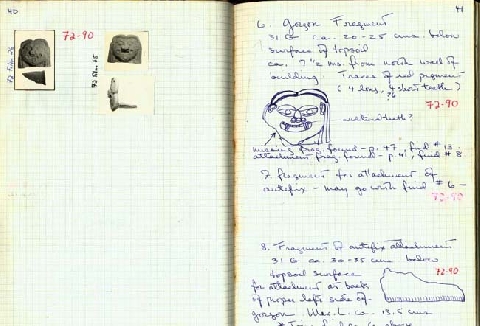 40
72-90
41
6. Gorgon Fragment
31 G ca. 20-25 cms. below
surface of topsoil
ca. 7 1/2 ms. from north wall of
building. Traces of red pigment
(4 long, 4 short teeth)
72-90
missing frag. found - p. 47, find # 13 -
attachment frag. found - p. 41, find # 8
7 fragment for attachment of
antefix - may go with find # 6 -
72-90
8. Fragment of antefix attachment
31 G ca. 30-35 cms. below
topsoil surface
72-90
for attachment at back
of proper left side of
gorgon. Max. L. ca. 13.5 cms